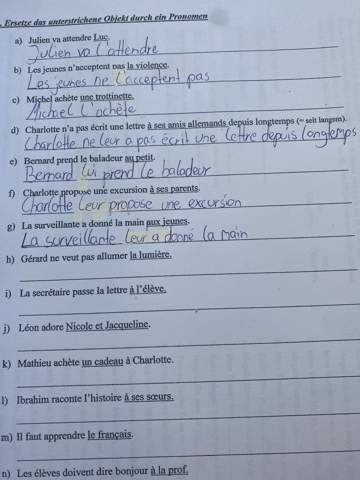 . Ersetze das unterstrichene Objekt durch ein Pronomen
a) Julien va attendre Luc.
Julien va l'attendre
b) Les jeunes n'acceptent pas la violence.
Les jeunes ne l'acceptent pas
c) Michel achète une trottinette.
Michel l'achète
d) Charlotte n'a pas écrit une lettre à ses amis allemands depuis longtemps (= seit langem).
Charlotte ne leur a pas écrit une lettre depuis longtemps
e) Bernard prend le baladeur au petit.
Bernard lui prend le baladeur
f) Charlotte propose une excursion à ses parents.
Charlotte leur propose une excursion
g) La surveillante a donné la main aux jeunes.
La surveillante leur a donné la main
h) Gérard ne veut pas allumer la lumière.
i) La secrétaire passe la lettre à l'élève.
j) Léon adore Nicole et Jacqueline.
k) Mathieu achète un cadeau à Charlotte.
l) Ibrahim raconte l'histoire à ses sœurs.
m) Il faut apprendre le français.
n) Les élèves doivent dire bonjour à la prof.